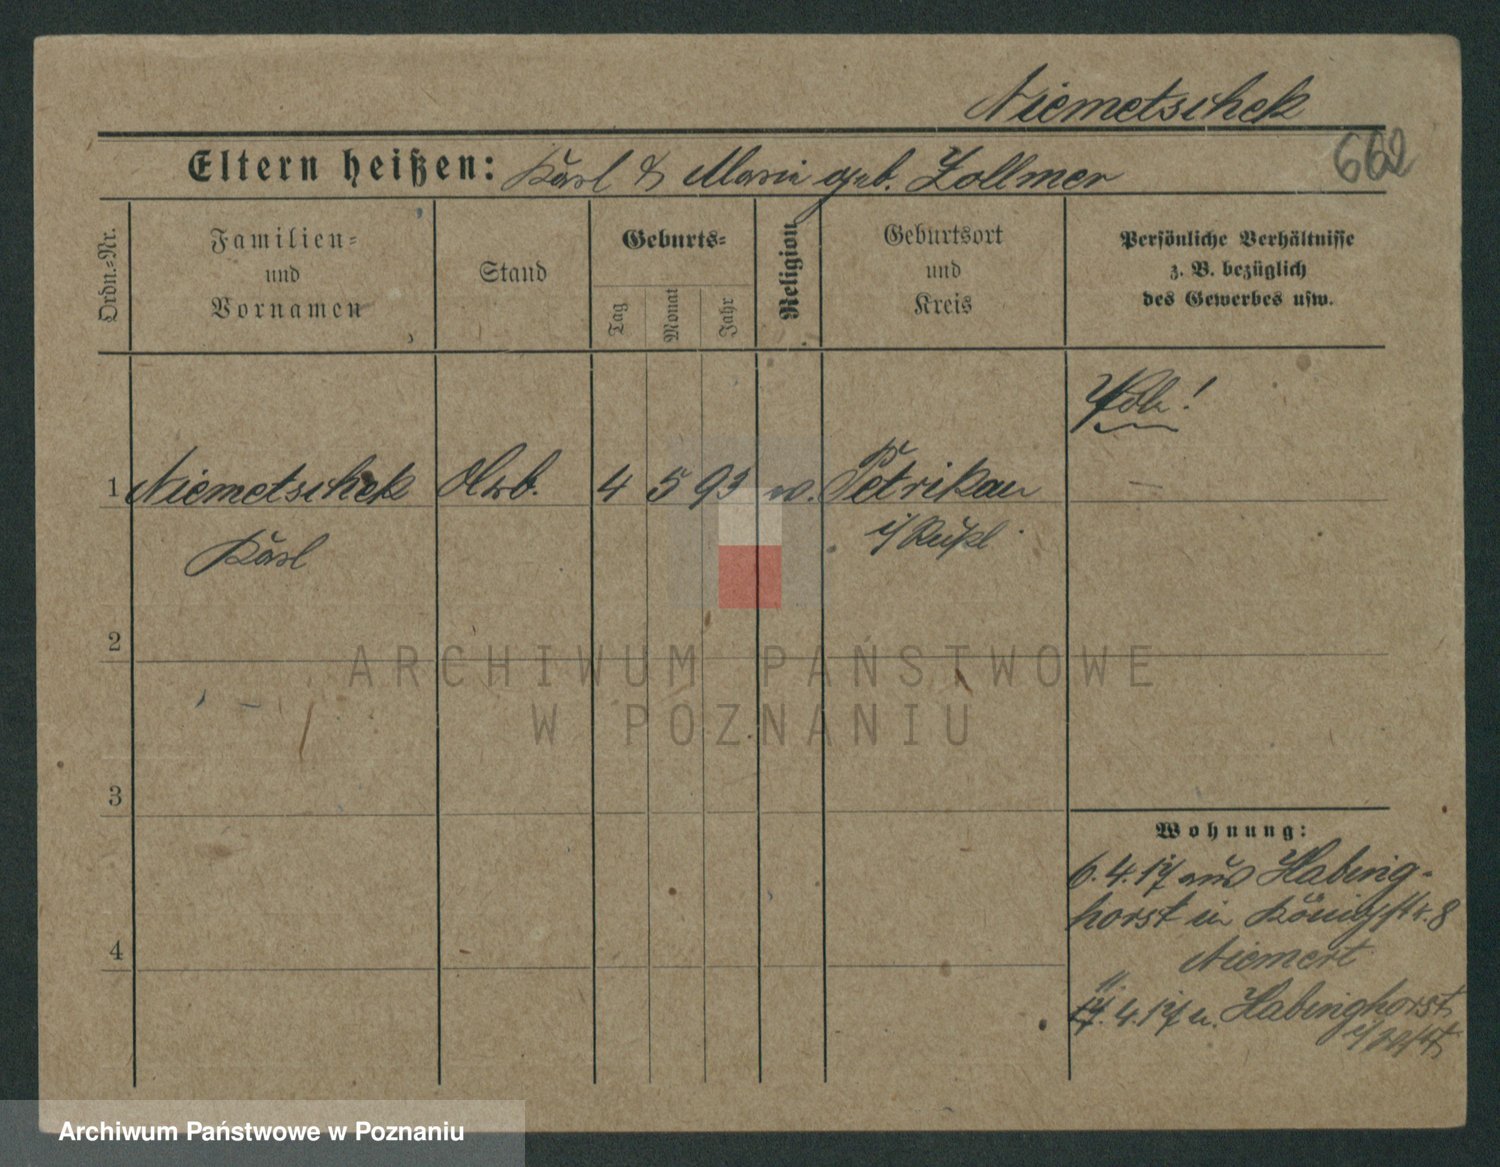 Niemetschek
662
Eltern heißen: Karl & Marie geb. Zollmer
Ordn.-Nr.
Familien-
und
Vornamen
Stand
Geburts-
Tag
Monat
Jahr
Religion
Geburtsort
und
Kreis
Persönliche Verhältnisse
z. B. bezüglich
des Gewerbes usw.
1 Niemetschek
Karl
4 5 93
Petrikau
i/ Rußl.
2
3
4
Wohnung:
6.4.17 aus Habing-
horst in Königstr. 8
Niemert
11.
17. 4.17 n. Habinghorst
ARCHIWUM PAŃSTWOWE
W POZNANIU
Archiwum Państwowe w Poznaniu